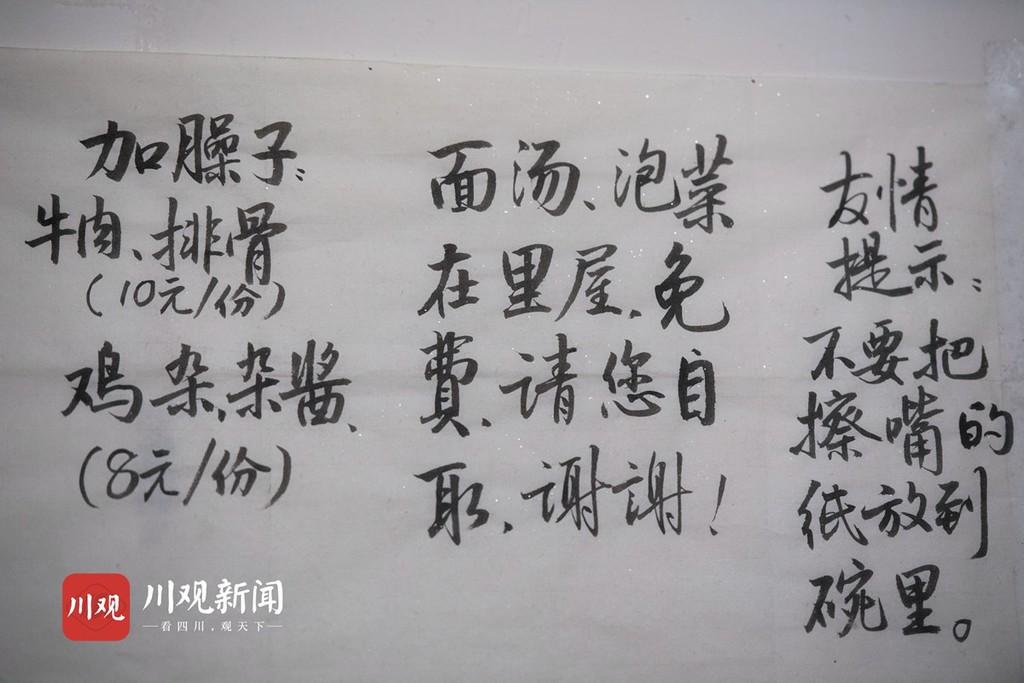 加臊子:
牛肉、排骨
(10元/份)
鸡杂,杂酱、
(8元/份)
面汤、泡菜
在里屋,免
費,请您自
取,谢謝!
友情
提示:
不要把
擦嘴的
纸放到
碗里。
川观
川观新闻
看四川,观天下